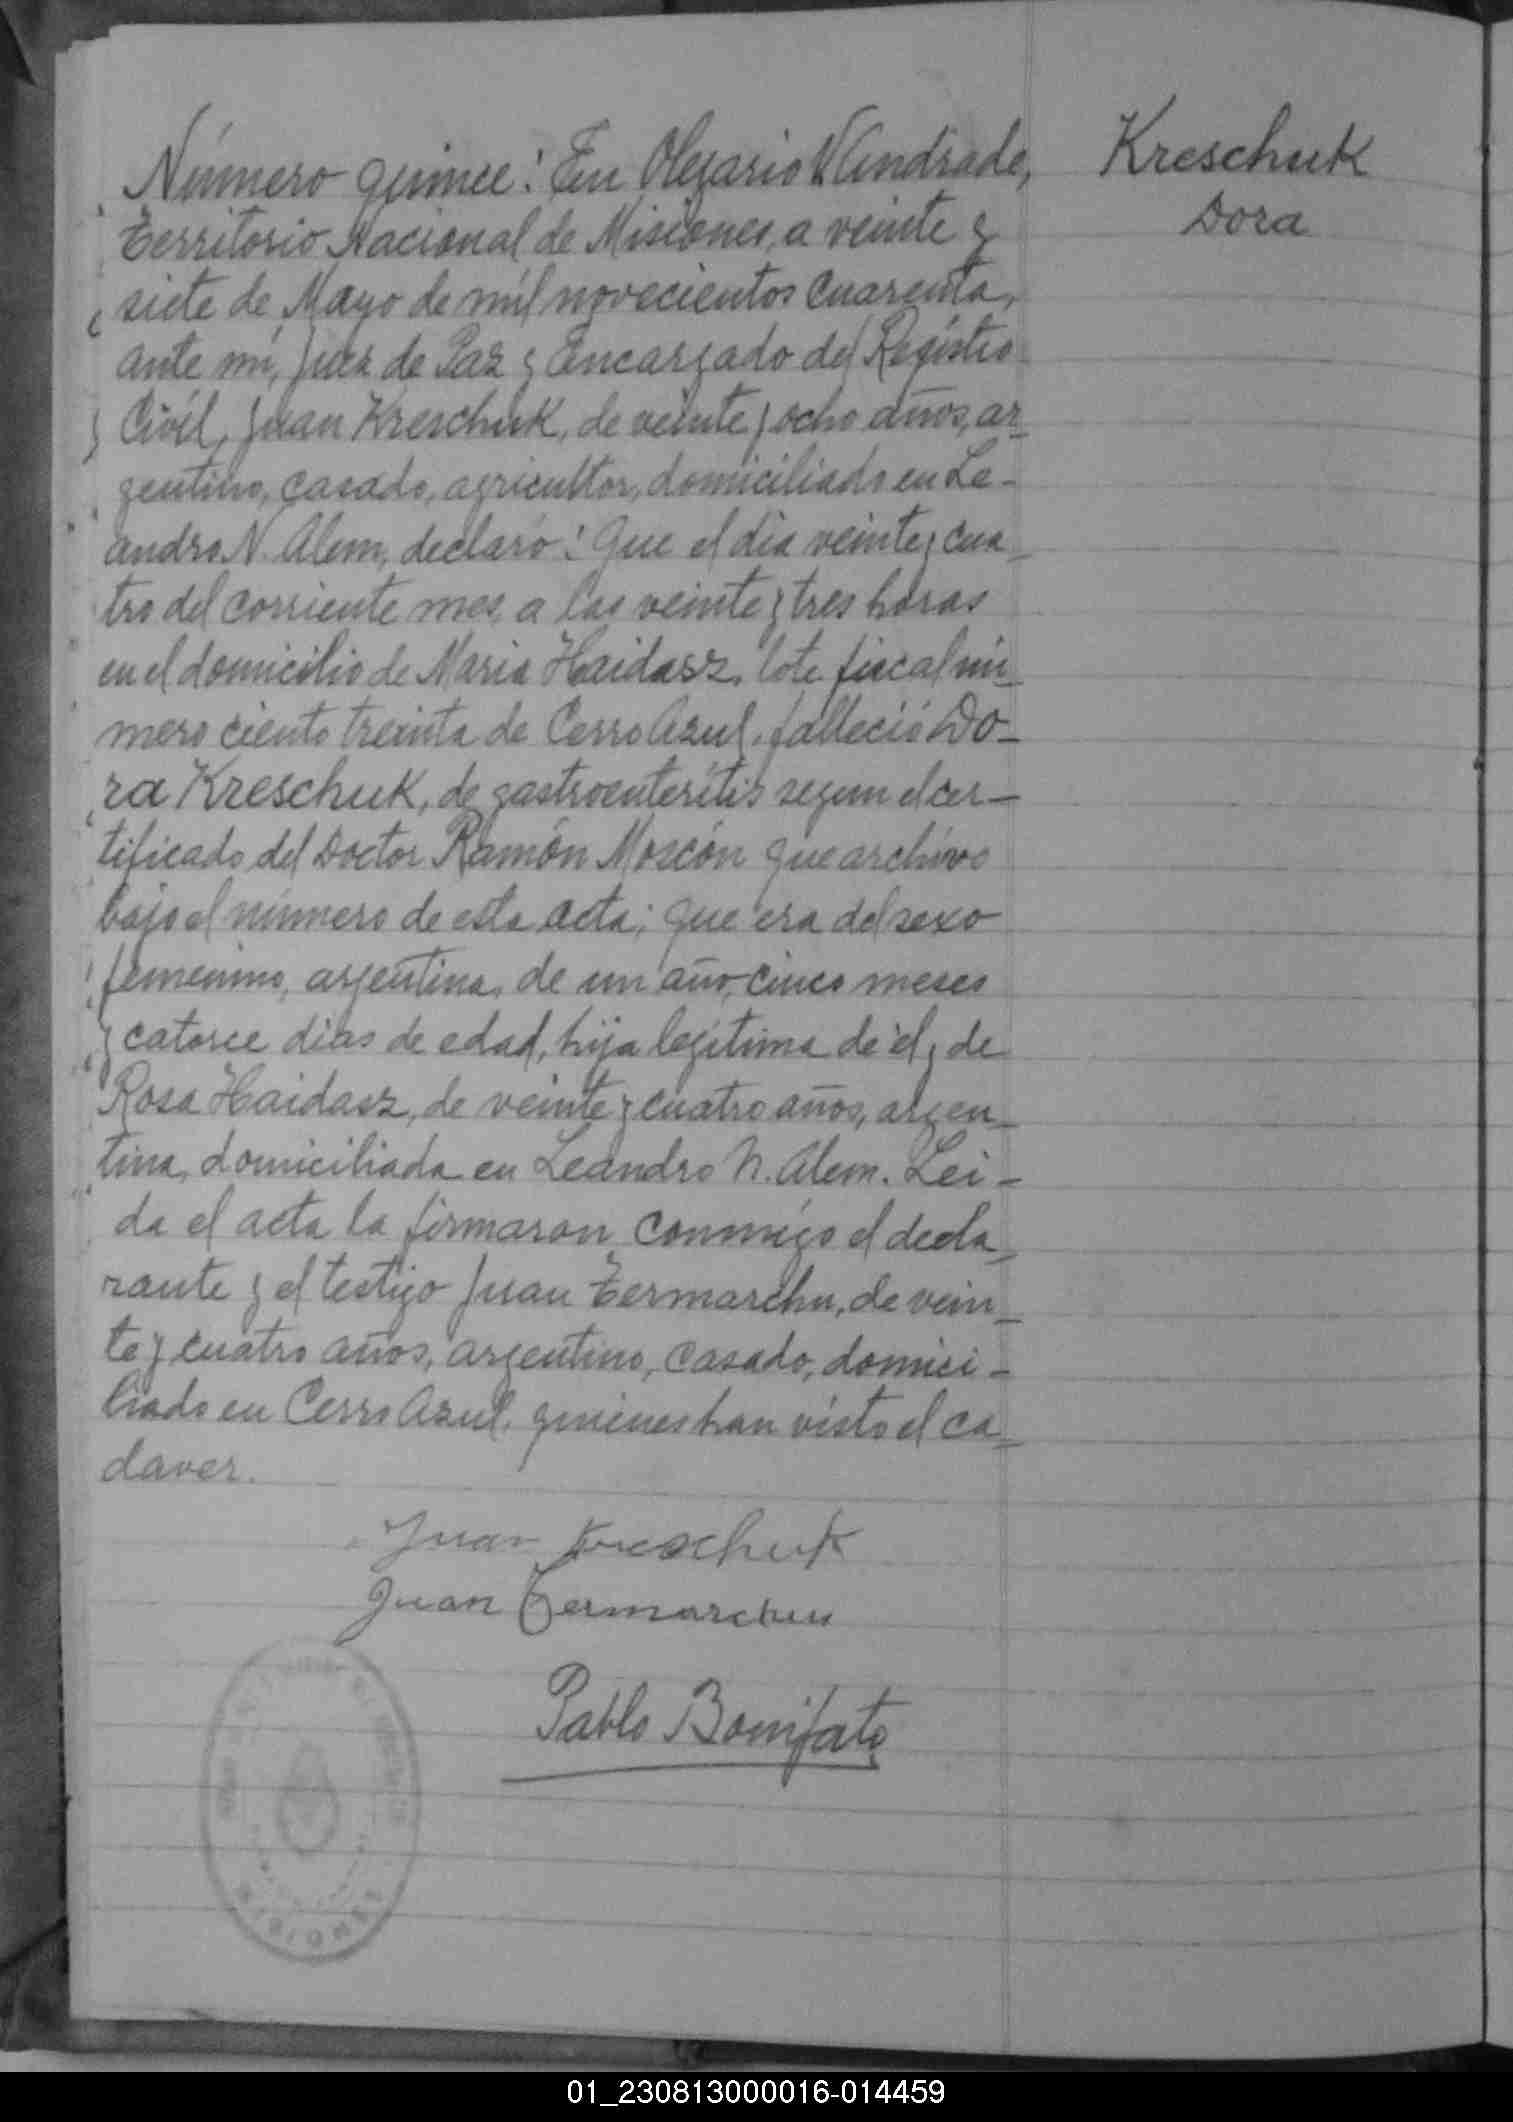 Número quince: En Olegario V Andrade,
Territorio Nacional de Misiones, a veinte y
siete de Mayo de mil novecientos cuarenta,
ante mi, Juez de Paz y Encargado del Registro
Civil, Juan Kreschuk, de veinte y ocho años, ar-
gentino, casado, agricultor, domiciliado en Le-
andro N. Alem, declaró: Que el dia veinte y cua
tro del corriente mes, a las veinte y tres horas
en el domicilio de Maria Haidasz, lote fiscal nú-
mero ciento treinta de Cerro Azul, falleció Do-
ra Kreschuk, de gastroenterítis segun el cer-
tificado del Doctor Ramón Moscón que archivo
bajo el número de esta acta; que era del sexo
femenino, argentina, de un año, cinco meses
y catorce dias de edad, hija legítima de él y de
Rosa Haidasz, de veinte y cuatro años, argen-
tina, domiciliada en Leandro N. Alem. Lei-
da el acta la firmaron conmigo el decla-
rante y el testigo Juan Termarchu, de vein-
te y cuatro años, argentino, casado, domici-
liado en Cerro Azul, quienes han visto el ca-
daver.
Juan Kreschuk
Juan Termarchu
Pablo Bonifato
MISIONES
Kreschuk
Dora
01_230813000016-014459